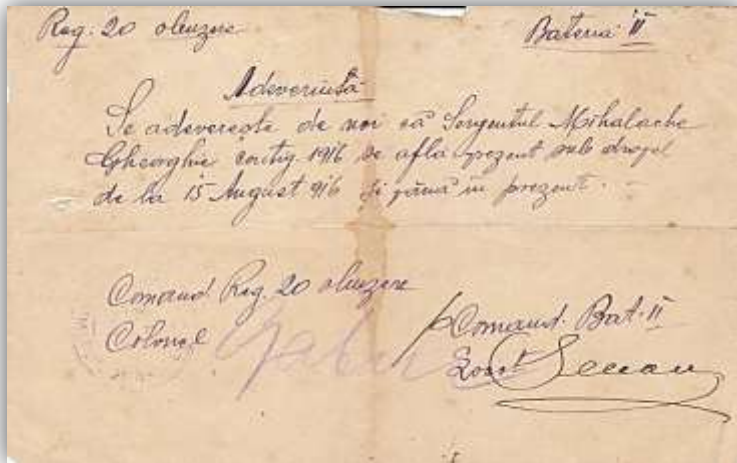 Reg. 20 obuzere
Bateria II
Adeverință
Se adeverește de noi că Sergentul Mihalache
Gheorghe contig 1916 se află prezent sub drapel
de la 15 August 916 și până în prezent.
Comand. Reg. 20 obuzere
Colonel
p Comand. Bat. II